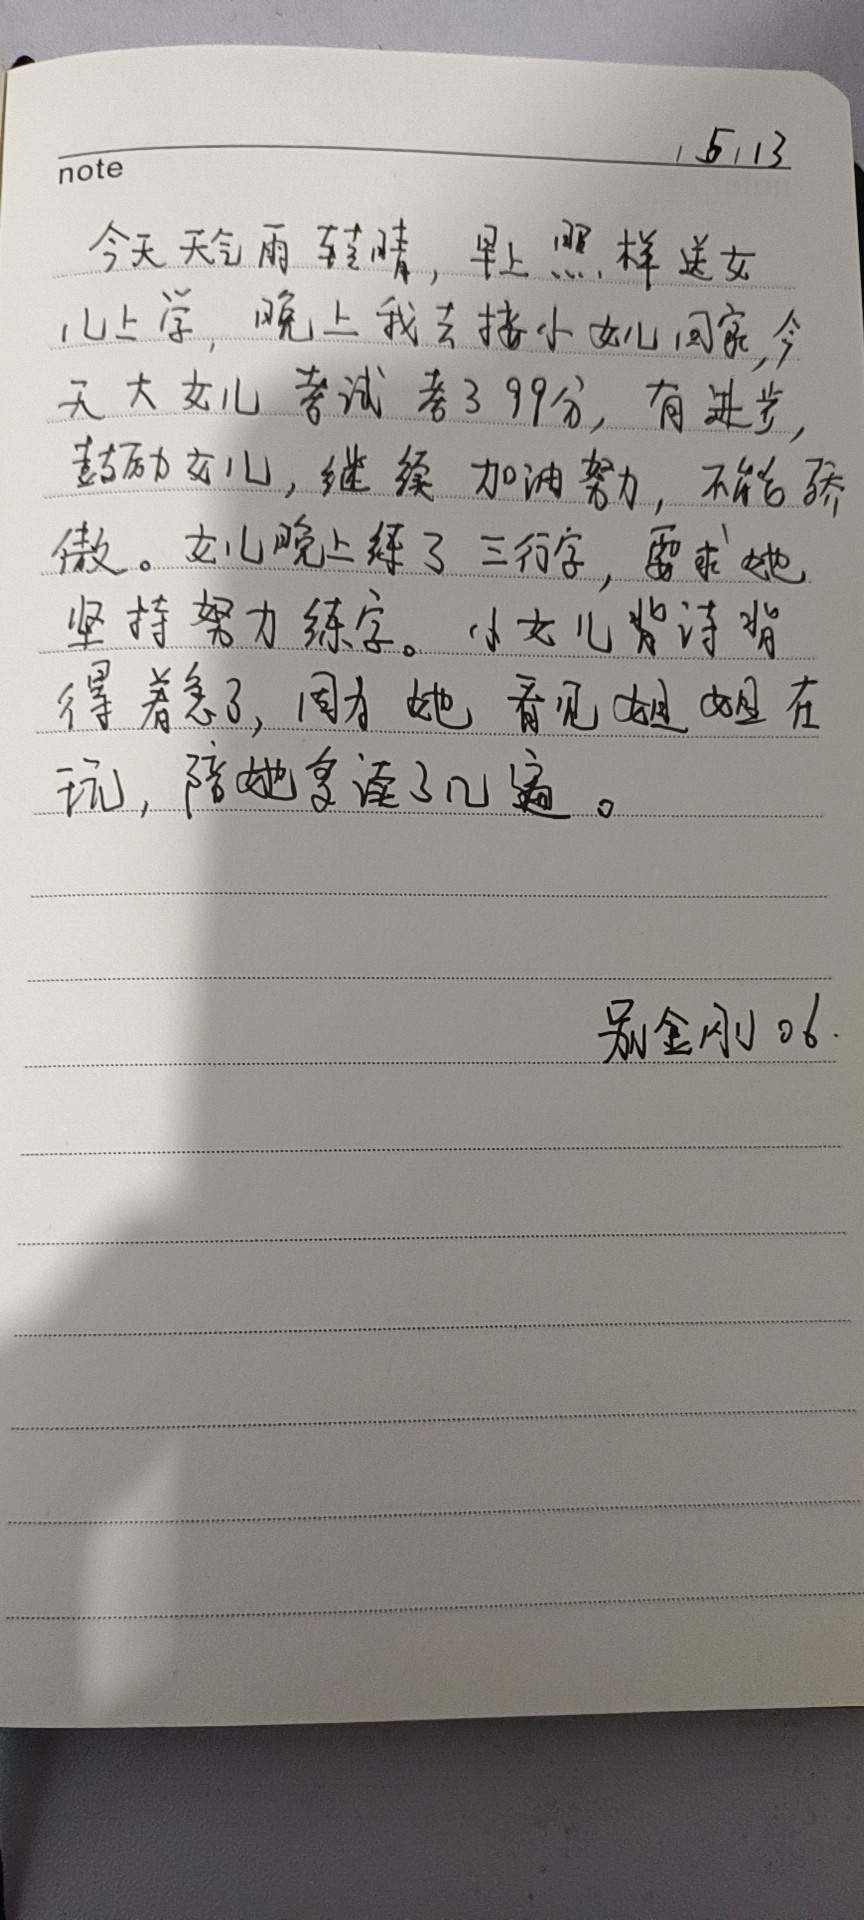 5.13
note
今天天气雨转晴，早上照样送女
儿上学，晚上我去接小女儿回家，今
天大女儿考试考了99分，有进步，
鼓励女儿，继续加油努力，不能骄
傲。女儿晚上练了三行字，要求她
坚持努力练字。小女儿背诗背
得着急了，因为她看见姐姐在
玩，陪她复读了几遍。
别金刚06.